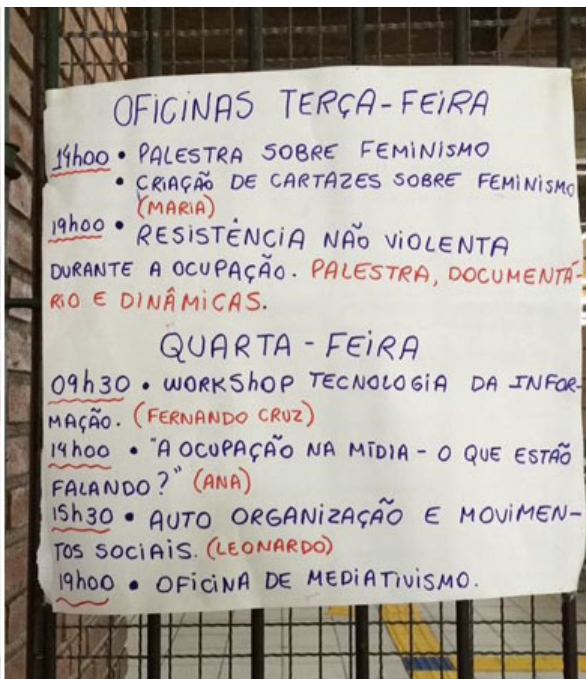 OFICINAS TERÇA-FEIRA
14h00 • PALESTRA SOBRE FEMINISMO
• CRIAÇÃO DE CARTAZES SOBRE FEMINISMO
(MARIA)
19h00 • RESISTÊNCIA NÃO VIOLENTA
DURANTE A OCUPAÇÃO. PALESTRA, DOCUMENTÁ-
RIO E DINÂMICAS.
QUARTA-FEIRA
09h30 • WORKSHOP TECNOLOGIA DA INFOR-
MAÇÃO. (FERNANDO CRUZ)
14h00 • "A OCUPAÇÃO NA MÍDIA - O QUE ESTÃO
FALANDO?" (ANA)
15h30 • AUTO ORGANIZAÇÃO E MOVIMEN-
TOS SOCIAIS. (LEONARDO)
19h00 • OFICINA DE MEDIATIVISMO.